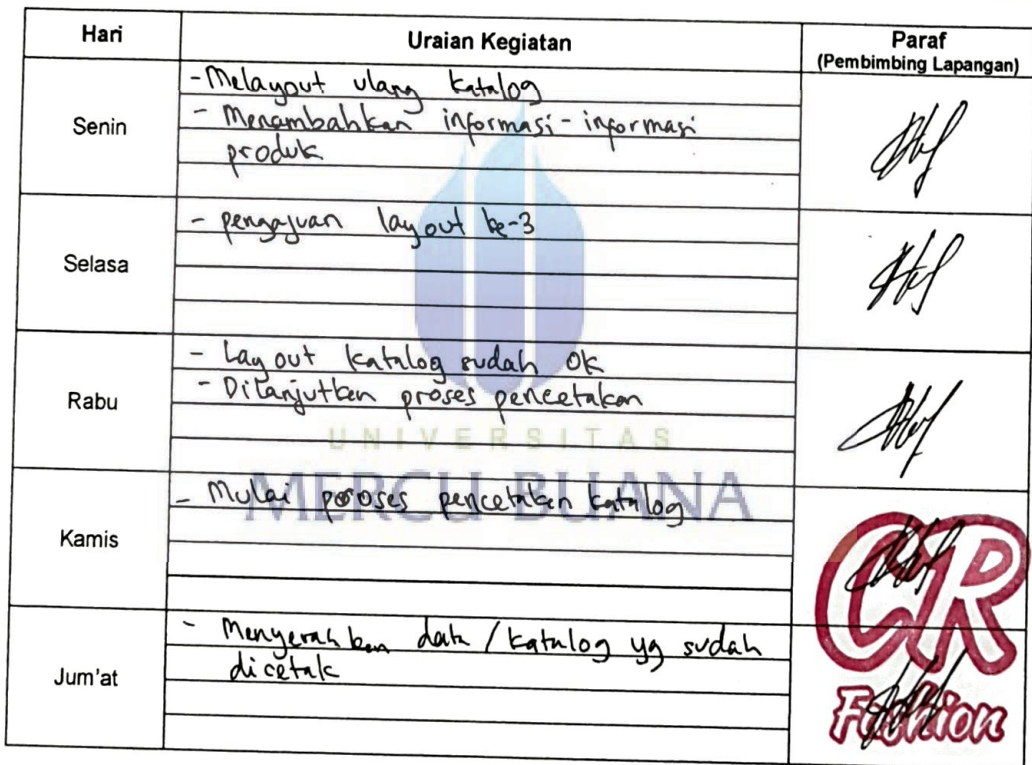 Hari Uraian Kegiatan Paraf
(Pembimbing Lapangan)
Senin
- Melayout ulang katalog
- Menambahkan informasi-informasi
produk
Selasa
- pengajuan layout ke-3
Rabu
- Layout katalog sudah Ok
- Dilanjutkan proses pencetakan
UNIVERSITAS
MERCU BUANA
Kamis
- Mulai proses pencetakan katalog
Jum'at
- Menyerahkan data / katalog yg sudah
dicetak
CR
Fashion